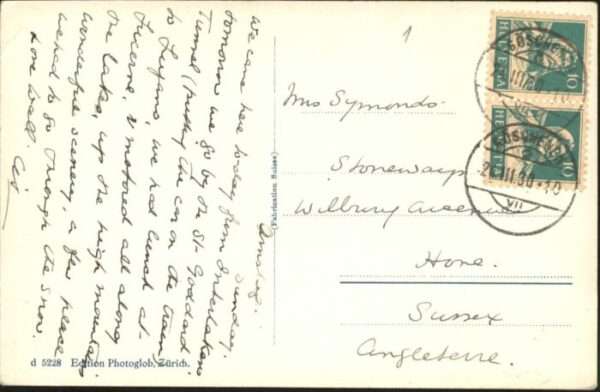 Amsteg.
Sunday.
We came here today from Interlaken
tomorrow we go by the St. Goddard
Tunnel (putting the car on the train)
to Lugano, we had lunch at
Lucerne, & motored all along
the lakes, up the high mountains
wonderful scenery, a few places
we had to go through the snow.
Love to all.
1
Mrs Symonds.
Stoneways
Wilbury Avenue
Hove.
Sussex
Angleterre.
(Fabrication Suisse)
d 5228 Edition Photoglob, Zürich.
HELVETIA
10
GÖSCHENEN
HELVETIA
10
GÖSCHENEN
VII